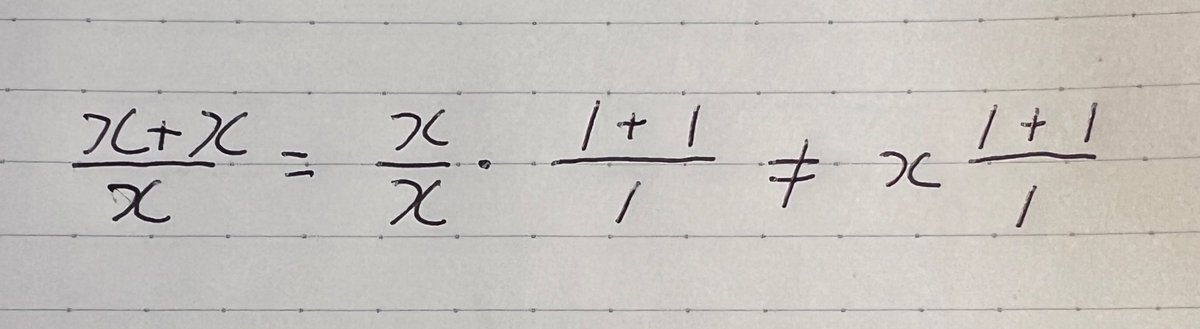 \frac{x+x}{x} = \frac{x}{x} \cdot \frac{1+1}{1} \neq x \frac{1+1}{1}